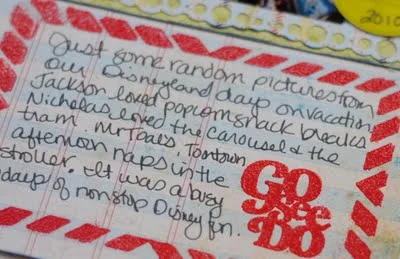 2010
Just some random pictures from
our Disneyland days on vacation
Jackson loved popcorn snack breaks
Nicholas loved the carousel & the
tram. Mr Toads, Toontown
afternoon naps in the
stroller. It was a busy
days of nonstop Disney fun.
GO
see
DO